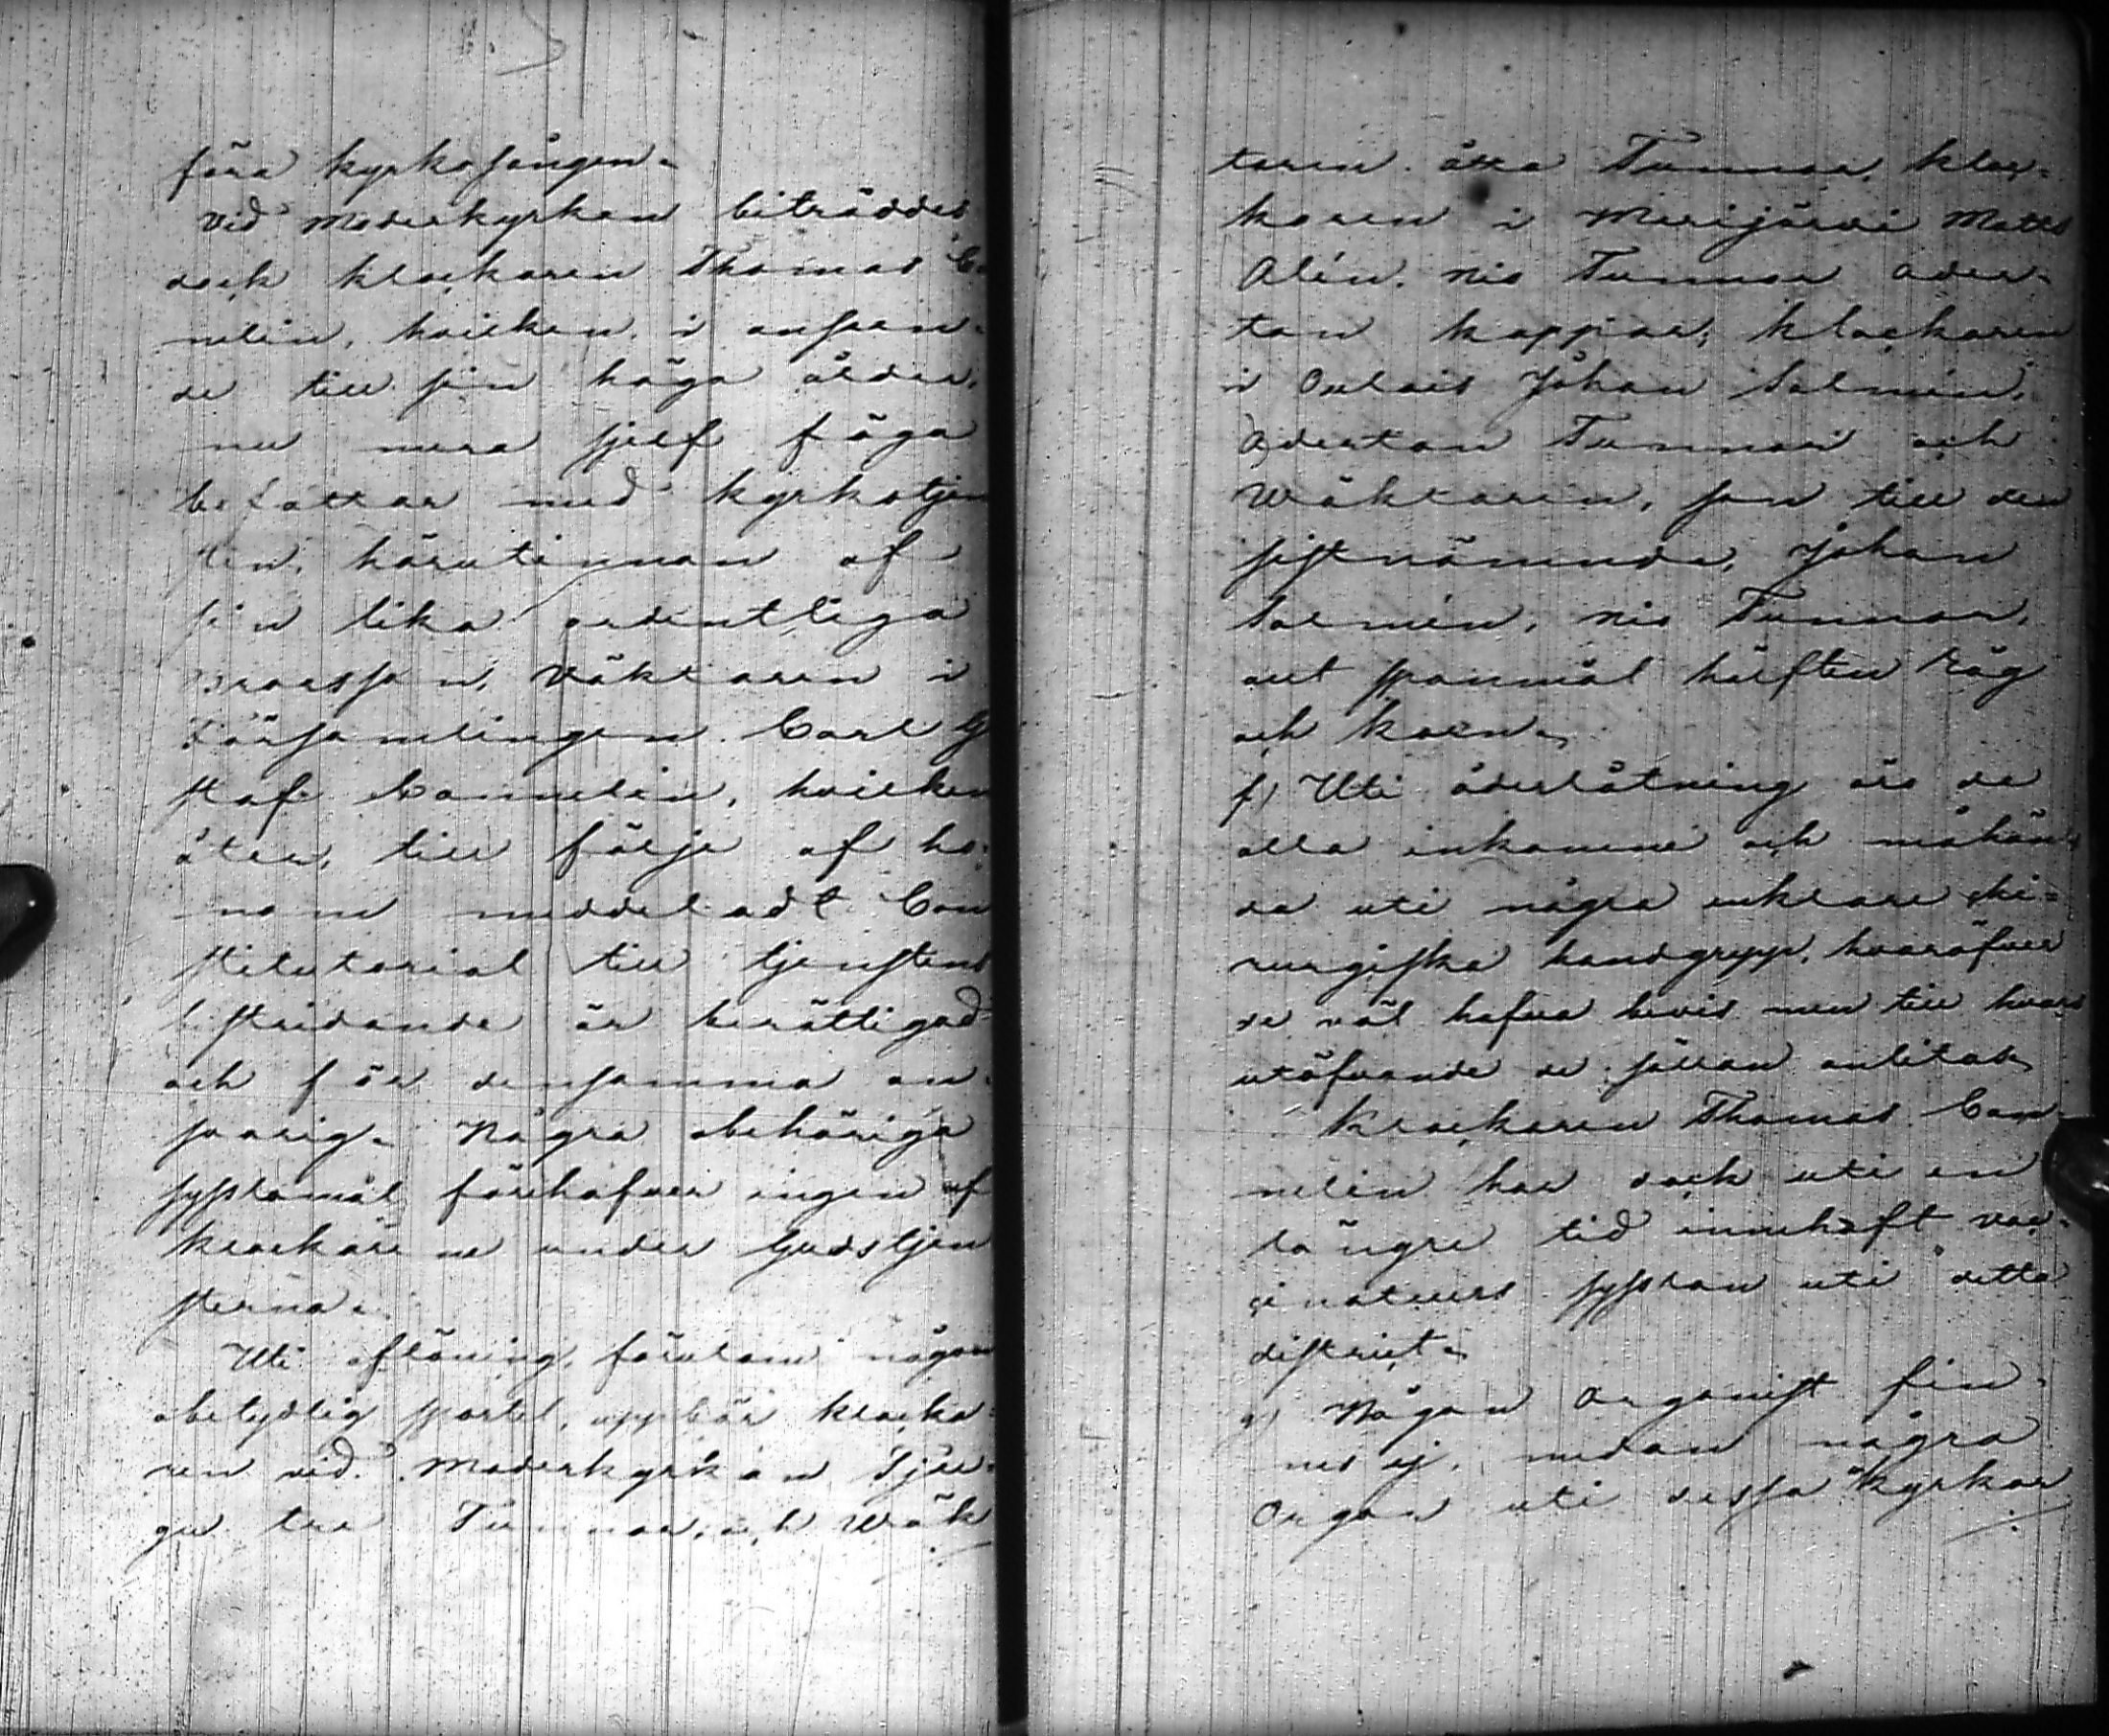 föra kyrkosången.
Vid Moderkyrkan biträddes
dock klockaren Thomas Co
nelin, hvilken i anseen-
de till sin höga ålder,
nu mera sjelf föga
befattar med kyrkotjen
sten, härutinnan af
sin lika ordentliga
Brorsson, Väktaren i
Församlingen Carl G
staf Connelin, hvilken
åter, till följe af ho-
nom meddeladt Con
stitutorial till tjenstens
bestridande är berättigad
och för densamma an-
svarig. Några obehöriga
sysslomål förehafver ingen af
klockarene under Gudstjen
sterna.
Uti aflöning, förutom någon
obetydlig sportel, uppbär klocka-
ren vid Moderkyrkan Tjue-
gu tre Tunnor, och Wäk
taren åtta Tunnor, kloc-
karen i Merijärvi Matts
Alén, nio Tunnor ader-
ton kappar; klockaren
i Oulais Johan Salmén,
Aderton Tunnor och
Wäktaren, son till den
sistnämnde, Johan
Salmén, nio Tunnor,
allt spanmål hälften Råg
och korn.
f) Uti åderlåtning äro de
alla inkomne och måhän-
da uti några enklare chi-
rurgiska handgrepp, hvaröfver
de väl hafva bevis men till hvars
utöfvande de sällan anlitas.
Klockaren Thomas Con-
nelin har dock uti en
längre tid innehaft vac-
cinateurs sysslan uti detta
district.
g) Någon Organist fin-
nes ej, medan några
Organ uti dessa kyrkor